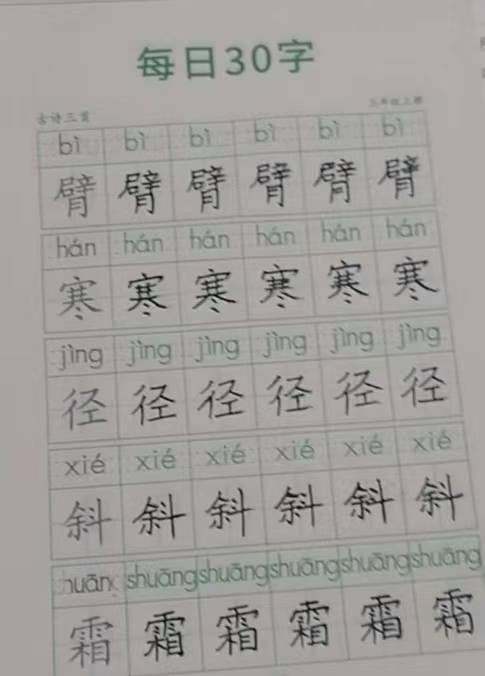 每日30字
古诗三首 三年级上册
bì bì bì bì bì bì
臂 臂 臂 臂 臂 臂
hán hán hán hán hán hán
寒 寒 寒 寒 寒 寒
jìng jìng jìng jìng jìng jìng
径 径 径 径 径 径
xié xié xié xié xié xié
斜 斜 斜 斜 斜 斜
huāng shuāng shuāng shuāng shuāng shuāng
霜 霜 霜 霜 霜 霜